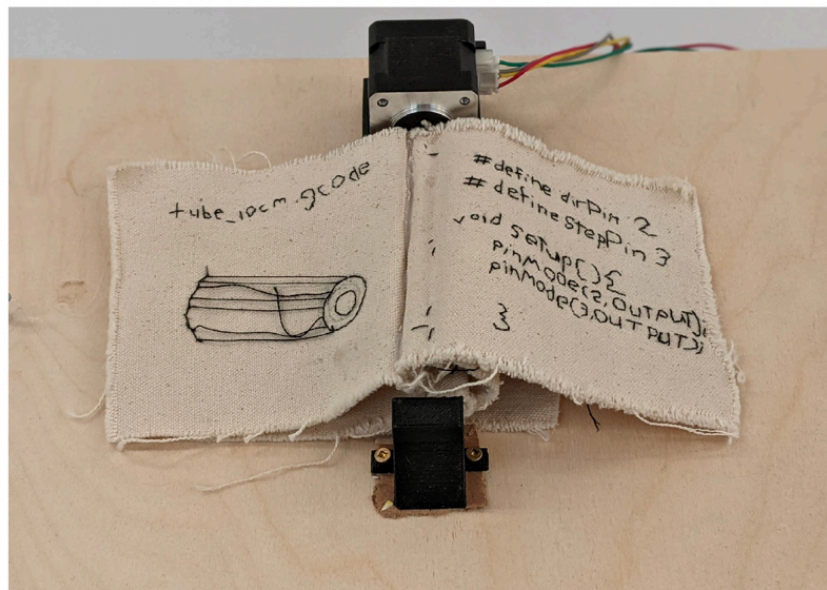 tube_10cm.gcode
#define dirPin 2
# define stepPin 3
void setup(){
pinMode(2,OUTPUT);
pinMode(3,OUTPUT);
}